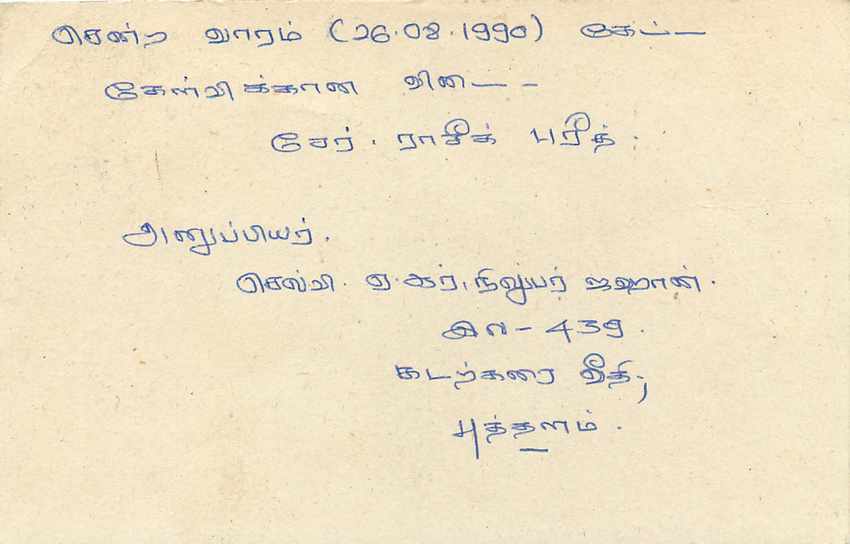 சென்ற வாரம் (26.08.1990) கேட்ட
கேள்விக்கான விடை --
சேர். ராசீக் பரீத்.
அனுப்பியர்.
செல்வி. ஏ.கர். ஜஹான்.
இல - 439.
கடற்கரை வீதி,
புத்தளம்.